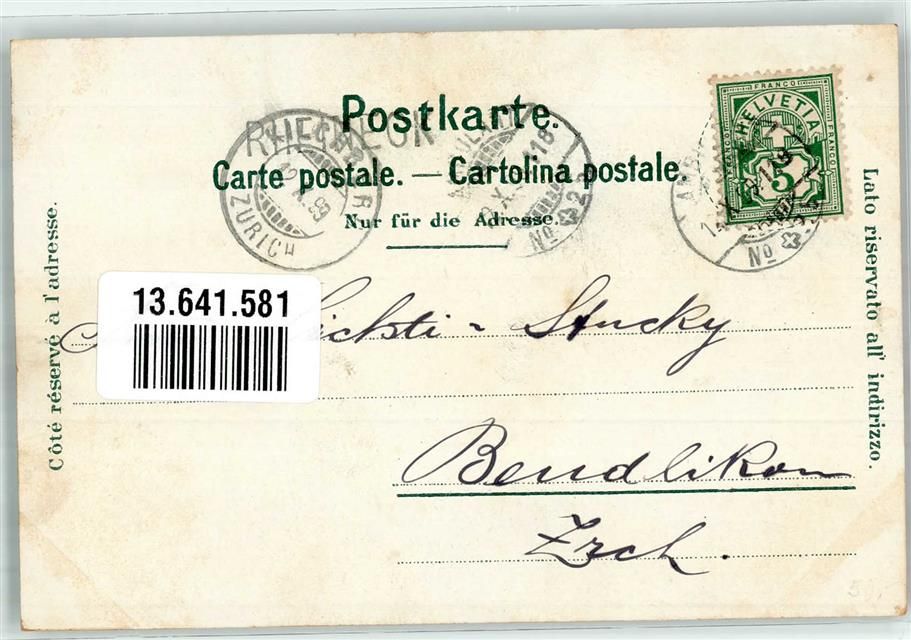 Postkarte.
Carte postale. — Cartolina postale.
Nur für die Adresse.
Côté réservé à l'adresse.
Lato riservato all' indirizzo.
FRANCO
HELVETIA
FRANCO
FRANCO
5
ZÜRICH
No 2
No
13.641.581
Stucky
Bendlikon
Zrch.